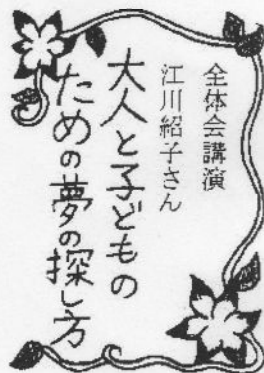 全体会講演
江川紹子さん
大人と子どもの
ための夢の探し方